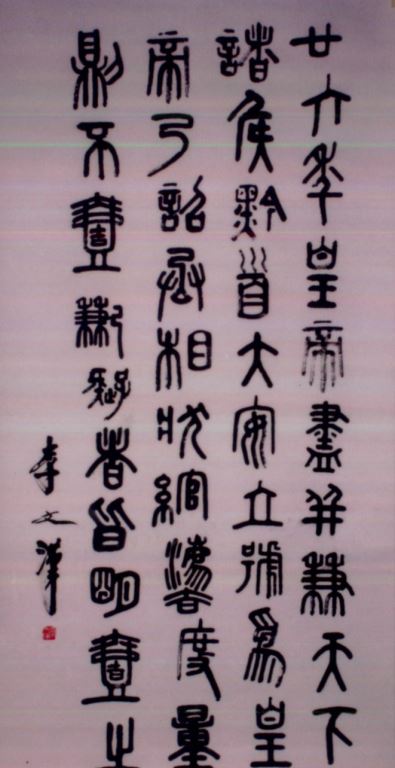 廿六年皇帝盡并兼天下
諸侯黔首大安立號為皇
帝乃詔丞相狀綰灋度量
則不壹歉疑者皆明壹之
李文